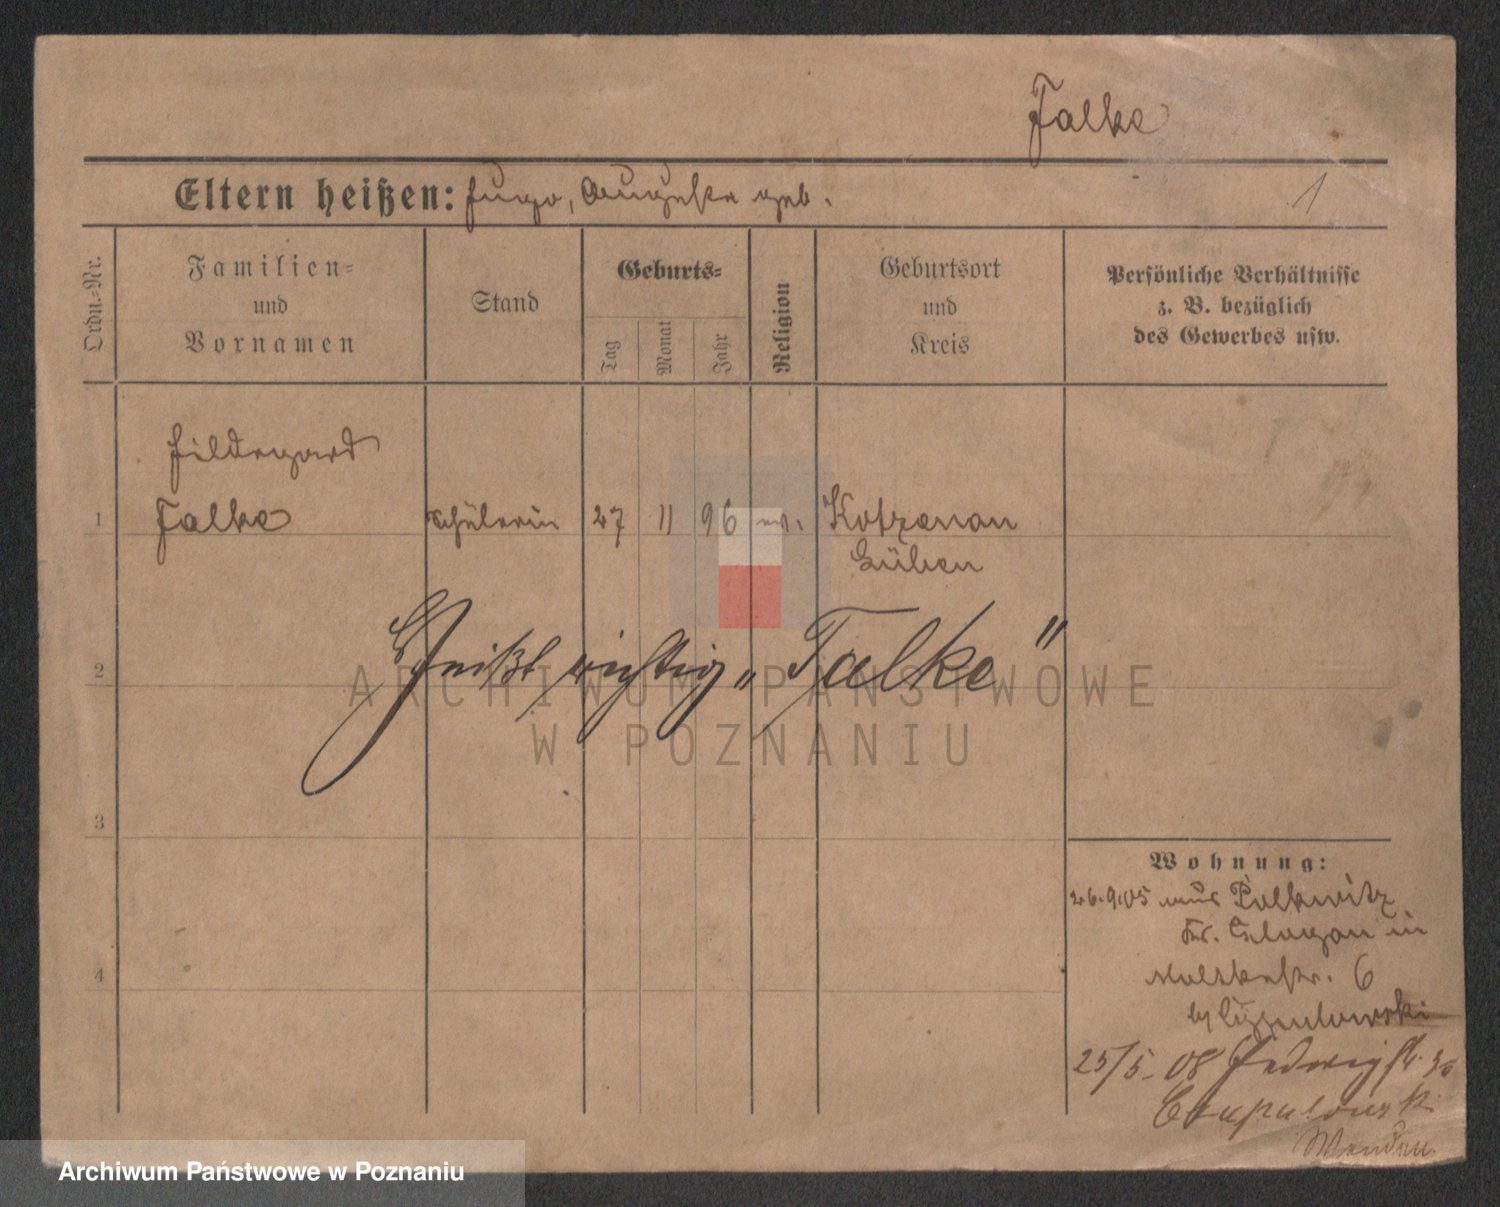 Falke
Eltern heißen: Hugo, Auguste geb.
1
Ordn.=Nr.
Familien=
und
Vornamen
Stand
Geburts=
Tag
Monat
Jahr
Religion
Geburtsort
und
Kreis
Persönliche Verhältnisse
z. B. bezüglich
des Gewerbes usw.
Hildegard
1 Falke Schülerin 27 11 96 ev. Kotzenau
Lüben
2 Heißt richtig „Talke"
3
4
Wohnung:
26.9.05 aus Polkwitz
Kr. Glogau in
Moltkestr. 6
by
25/5. 08 Hedwigstr. 30
ARCHIWUM PAŃSTWOWE
W POZNANIU
Archiwum Państwowe w Poznaniu